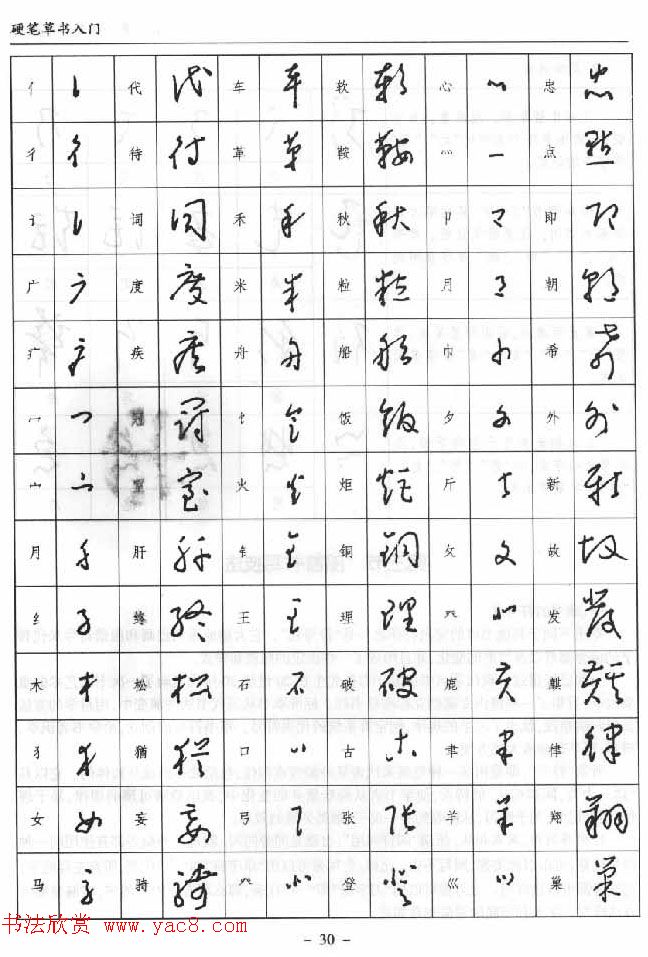 硬笔草书入门
亻 代 车 软 心 忠
彳 待 革 鞍 灬 点
讠 词 禾 秋 卩 即
广 度 米 粒 月 朝
疒 疾 舟 船 巾 希
冖 冠 饣 饭 夕 外
宀 室 火 炬 斤 新
月 肝 钅 铜 攵 故
纟 终 王 理 癶 发
木 松 石 破 鹿 麒
犭 猶 口 古 聿 律
女 妄 弓 张 羊 翔
马 骑 癶 登 巛 巢
- 30 -
书法欣赏 www.yac8.com